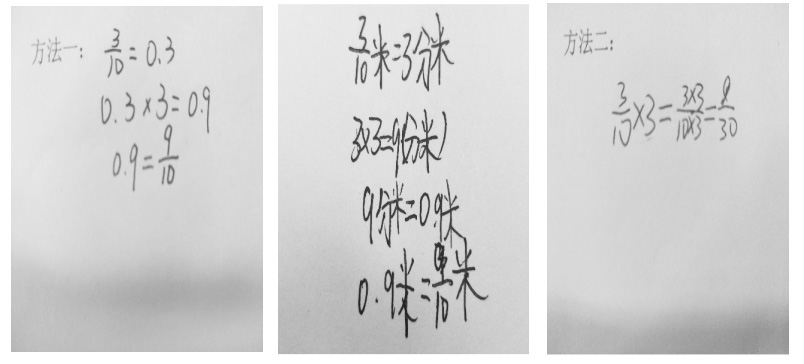 方法一: 3/10 = 0.3
0.3 × 3 = 0.9
0.9 = 9/10
3/10米=3分米
3×3=9(分米)
9分米=0.9米
0.9米=9/10米
方法二:
3/10 × 3 = 3×3/10×3 = 9/30